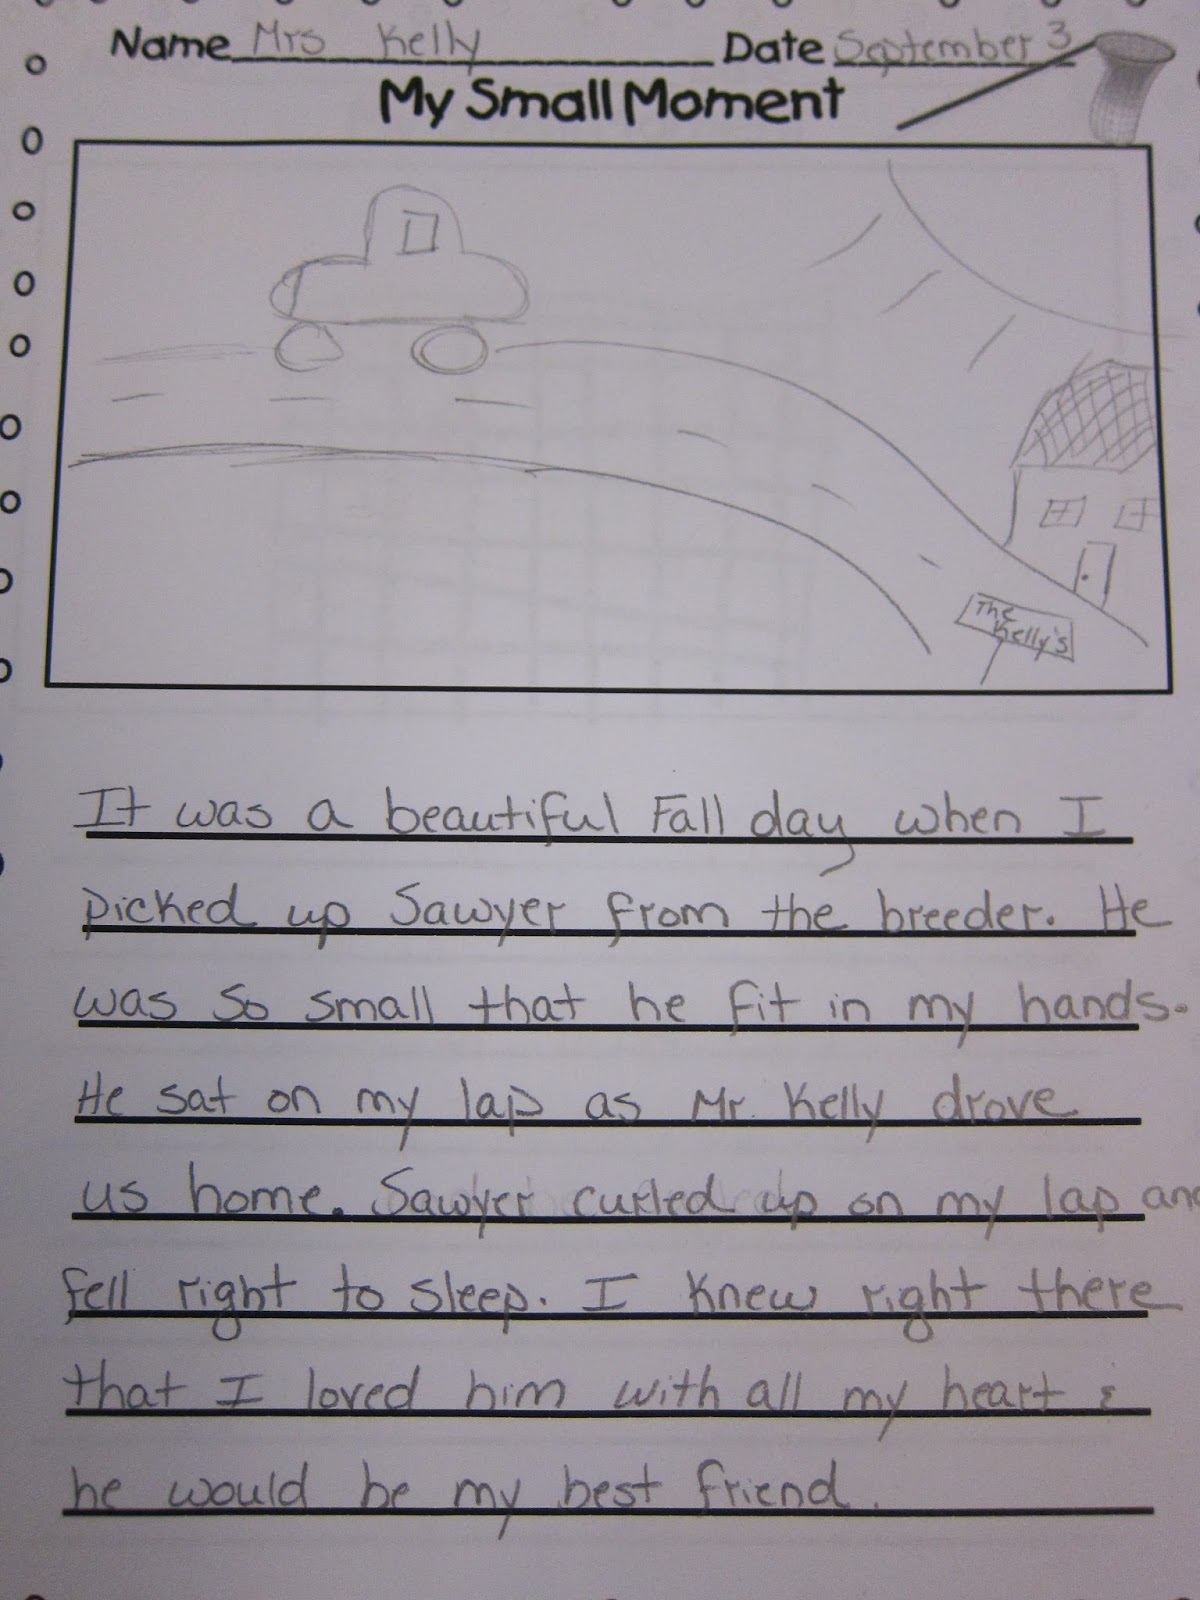 Name Mrs Kelly Date September 3
My Small Moment
The
Kelly's
It was a beautiful Fall day when I
picked up Sawyer from the breeder. He
was so small that he fit in my hands.
He sat on my lap as Mr. Kelly drove
us home. Sawyer curled up on my lap and
fell right to sleep. I knew right there
that I loved him with all my heart &
he would be my best friend.